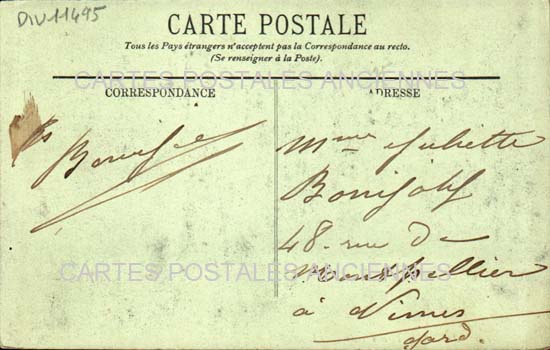 DIV11495
CARTE POSTALE
Tous les Pays étrangers n'acceptent pas la Correspondance au recto.
(Se renseigner à la Poste).
CARTES POSTALES ANCIENNES
CORRESPONDANCE
ADRESSE
Mme Juliette
48 rue de
CARTES POSTALES ANCIENNES
Montpellier
à Nimes
Gard.